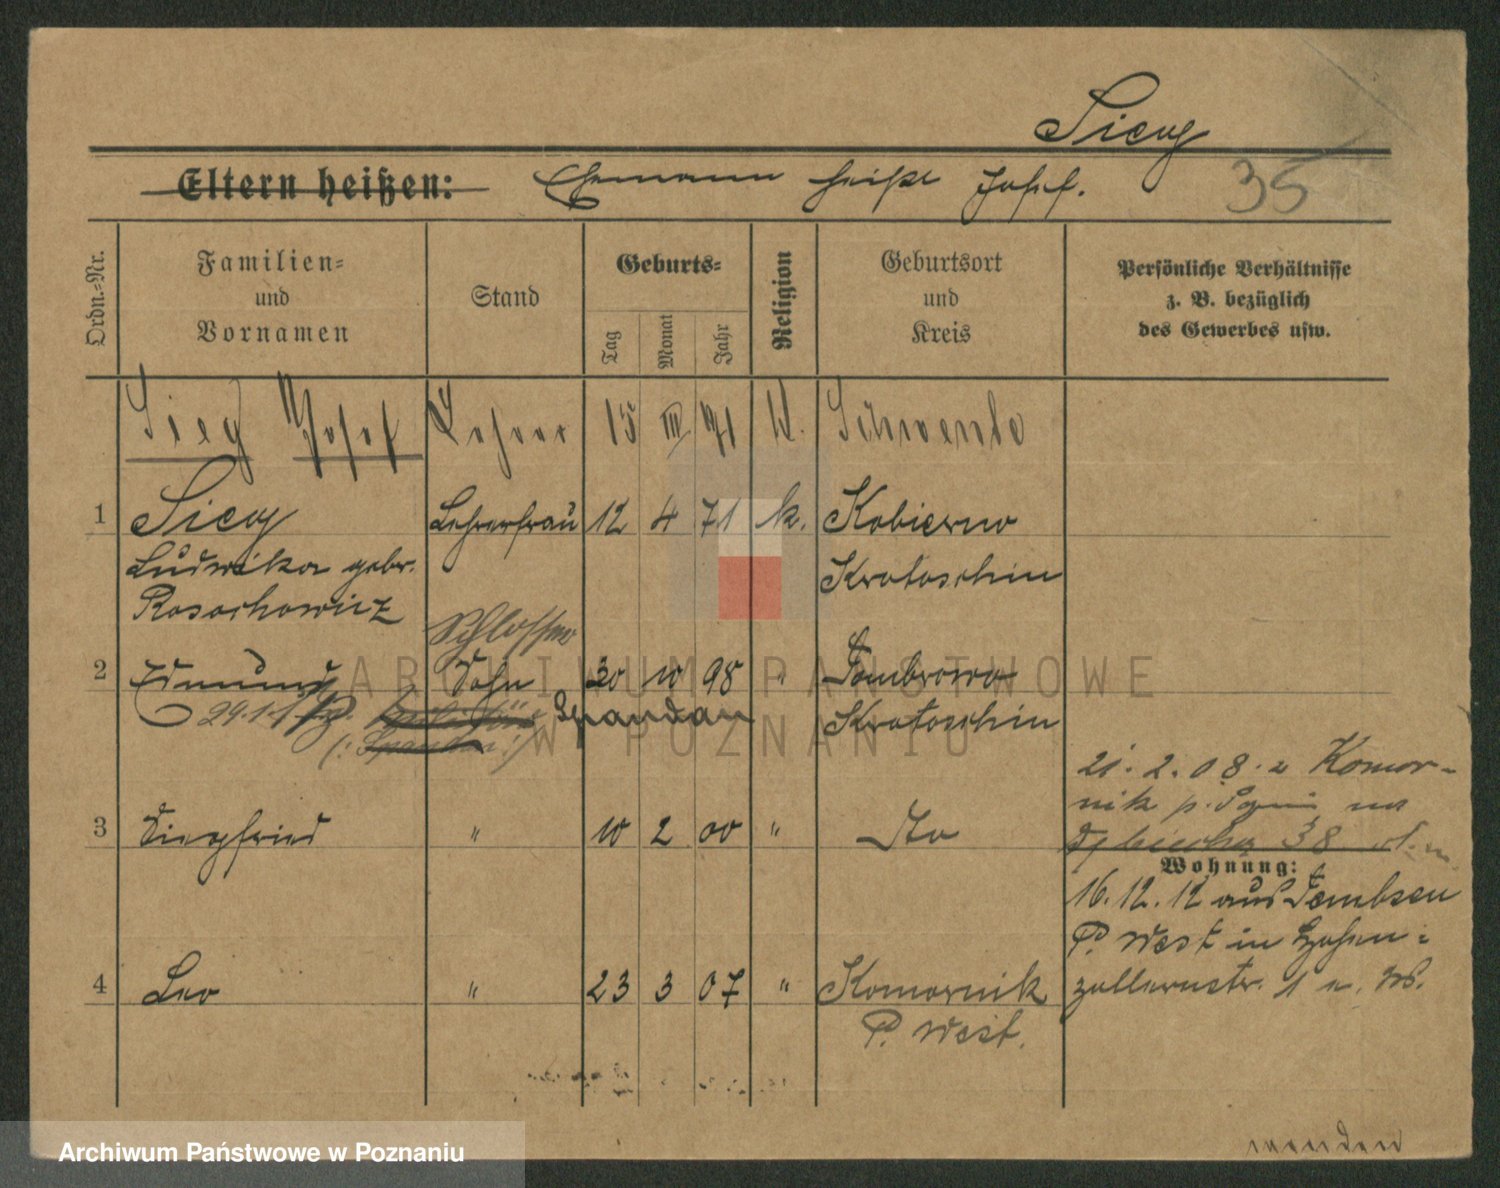 Sieg
Eltern heißen: Ehemann heißt Josef.
35
Ordn.-Nr.
Familien-
und
Vornamen
Stand
Geburts-
Tag
Monat
Jahr
Religion
Geburtsort
und
Kreis
Persönliche Verhältnisse
z. B. bezüglich
des Gewerbes usw.
Sieg Josef Lehrer 15 III 71 k. Schwente
1 Sieg Lehrerfrau 12 4 71 k. Kobierno
Ludwika gebr. Krotoschin
Rosochowicz
Schlosser
2 Edmund Sohn 20 10 98 " Dombrowo
29.1. Spandau Krotoschin
(: Spandau :)
21. 2. 08. z Komor-
nik p. na
3 Siegfried " 10 2 00 " Dto
38
Wohnung:
16. 12. 12 aus Dembsen
P. West in Hohen:
4 Leo " 23 3 07 " Komornik
zollernstr. 1 n. W.
P. West.
wenden
ARCHIWUM PAŃSTWOWE
W POZNANIU
Archiwum Państwowe w Poznaniu